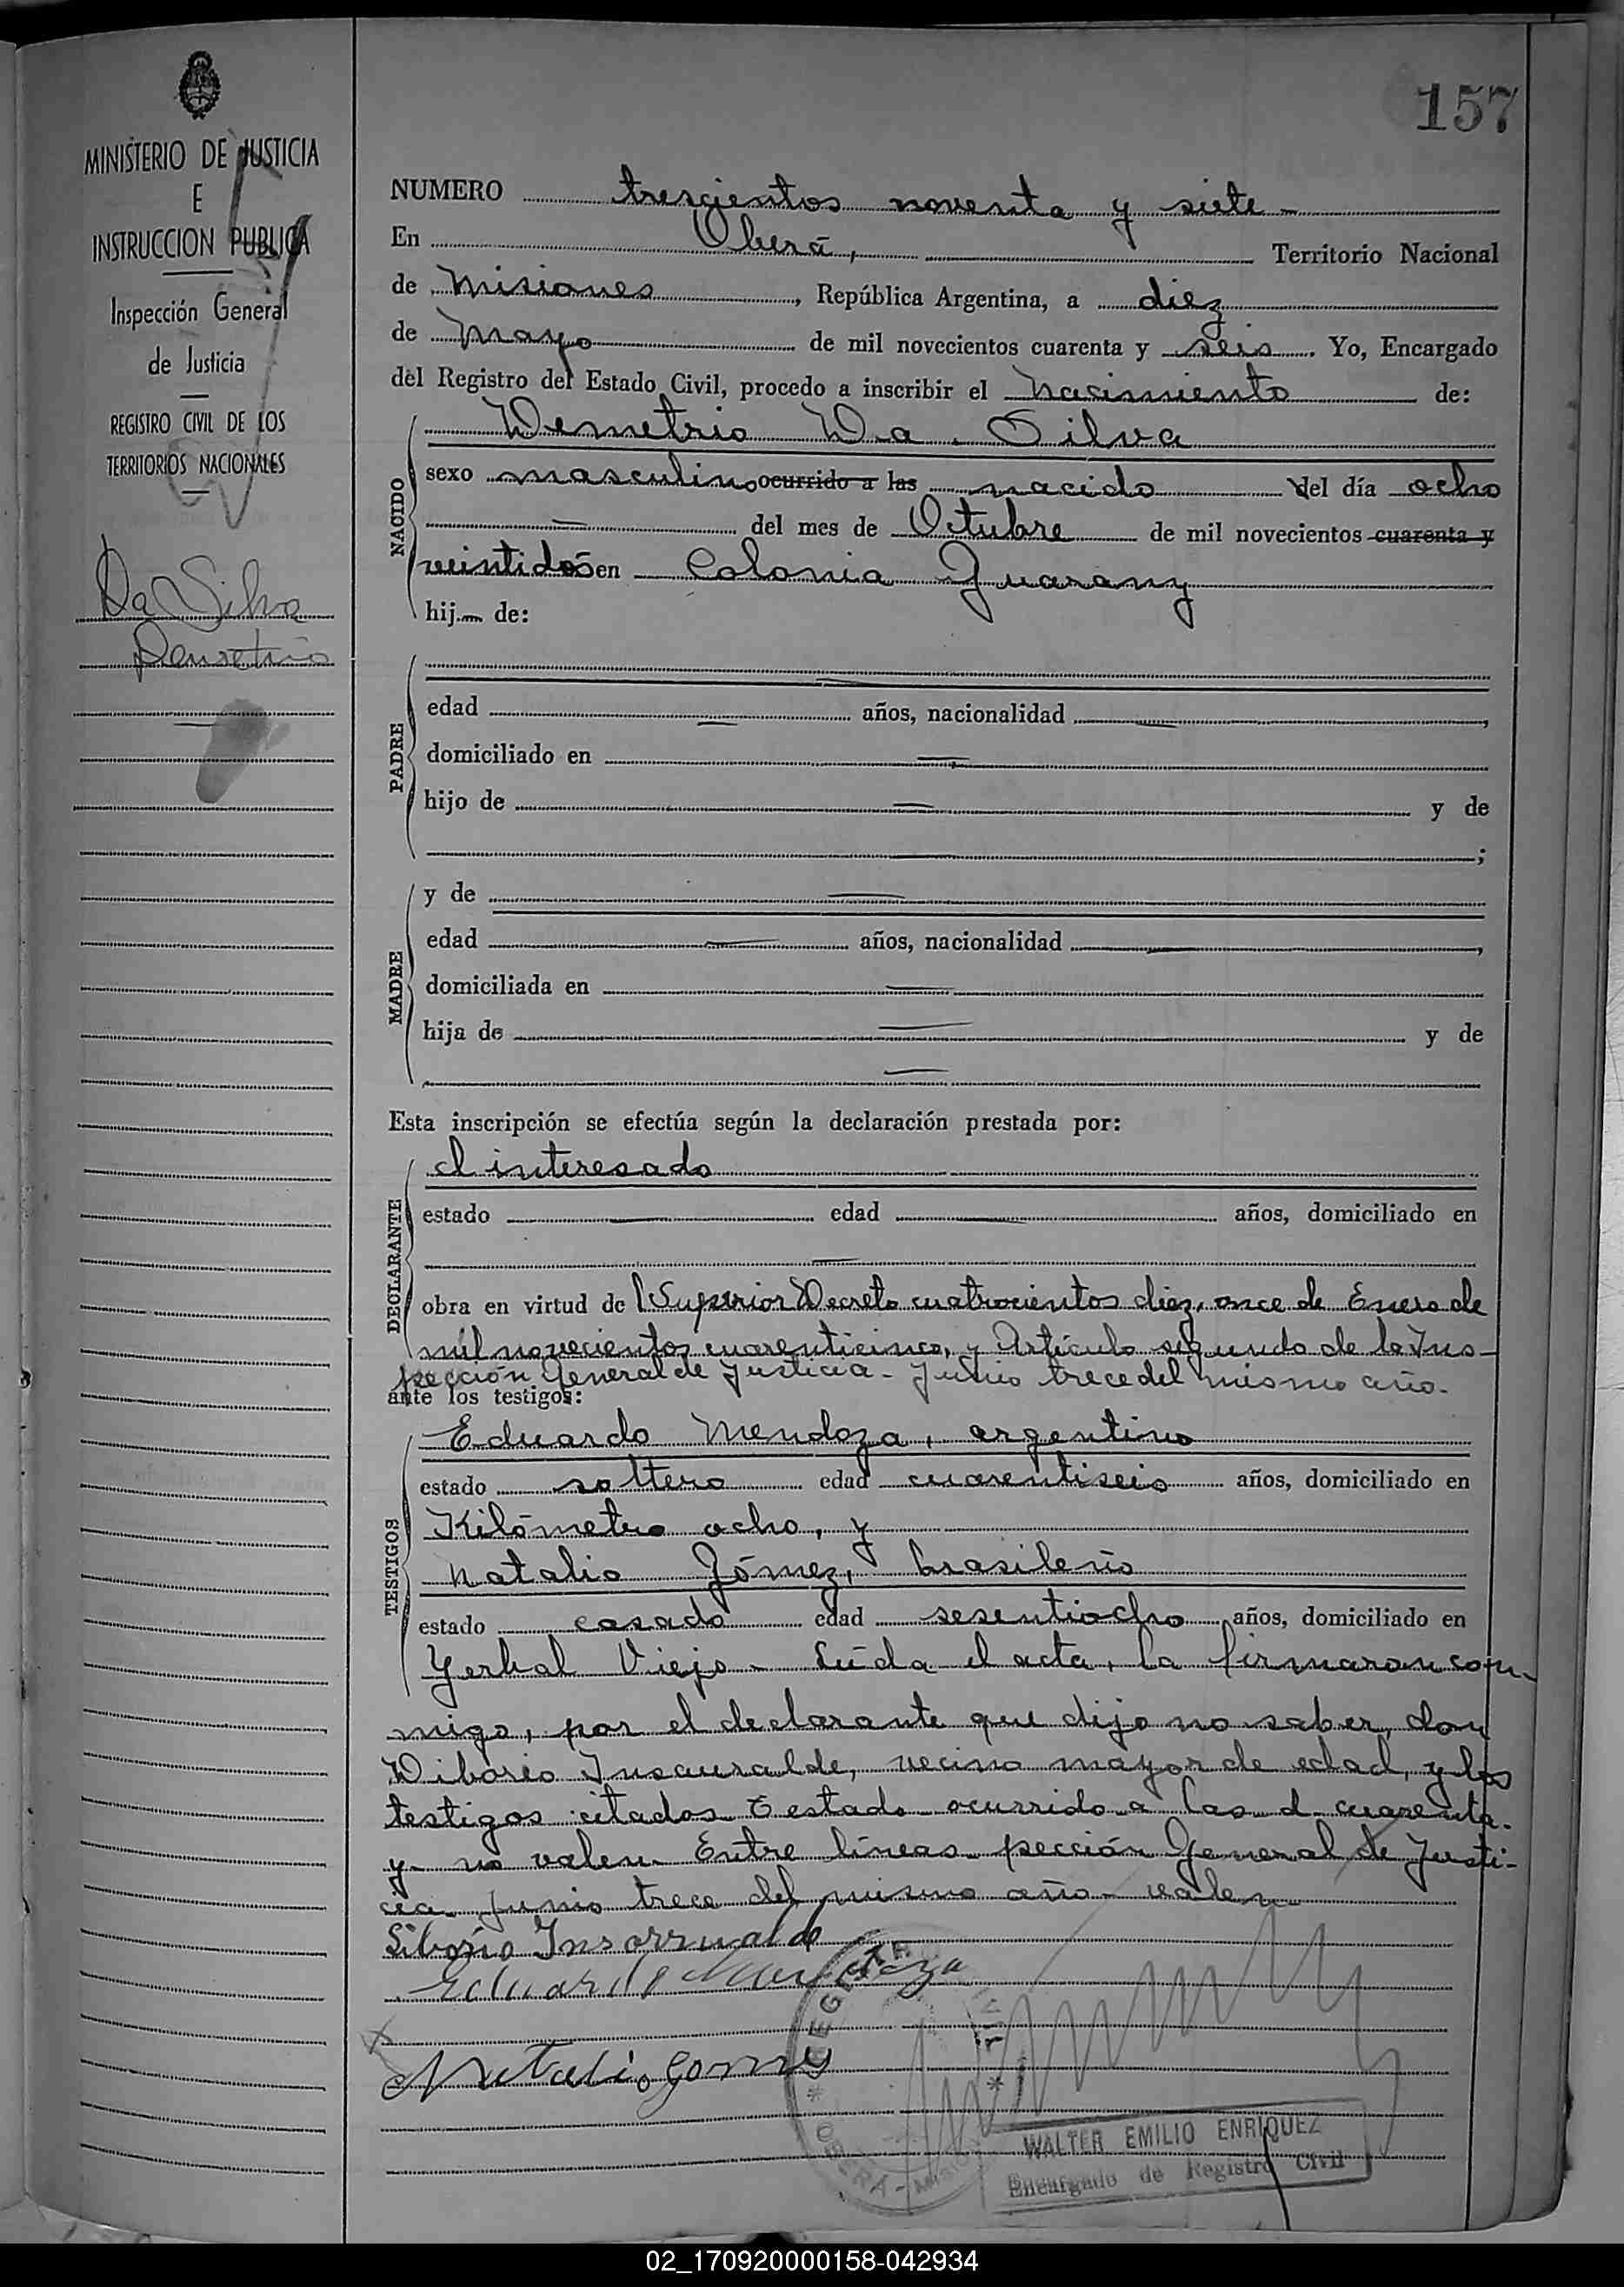 157
MINISTERIO DE JUSTICIA
E
INSTRUCCION PUBLICA
Inspección General
de Justicia
REGISTRO CIVIL DE LOS
TERRITORIOS NACIONALES
Da Silva
Demetrio
NUMERO trescientos noventa y siete
En Oberá, Territorio Nacional
de Misiones, República Argentina, a diez
de Mayo de mil novecientos cuarenta y seis. Yo, Encargado
del Registro del Estado Civil, procedo a inscribir el nacimiento de:
NACIDO
Demetrio Da Silva
sexo masculino ocurrido a las nacido del día ocho
del mes de Octubre de mil novecientos cuarenta y
veintidós en Colonia Guarany
hij de:
PADRE
edad años, nacionalidad
domiciliado en
hijo de y de
;
MADRE
y de
edad años, nacionalidad
domiciliada en
hija de y de
Esta inscripción se efectúa según la declaración prestada por:
DECLARANTE
el interesado
estado edad años, domiciliado en
obra en virtud de Superior Decreto cuatrocientos diez, once de Enero de
mil novecientos cuarenticinco, y Artículo segundo de la Ins-
pección General de Justicia - Junio trece del mismo año-
ante los testigos:
TESTIGOS
Eduardo Mendoza, argentino
estado soltero edad cuarentiseis años, domiciliado en
Kilómetro ocho, y
Natalio Gómez, brasileño
estado casado edad sesentiocho años, domiciliado en
Yerbal Viejo - Leída el acta, la firmaron con-
migo, por el declarante que dijo no saber, don
Liborio Insaurralde, vecino mayor de edad, y los
testigos citados Testado ocurrido a las d cuarenta
y- no valen- Entre líneas- pección General de Justi-
cia- Junio trece del mismo año- valen
Liborio Insorrualde
Eduardo Mendoza
Natalio Gomez
WALTER EMILIO ENRIQUEZ
Encargado de Registro Civil
02_170920000158-042934